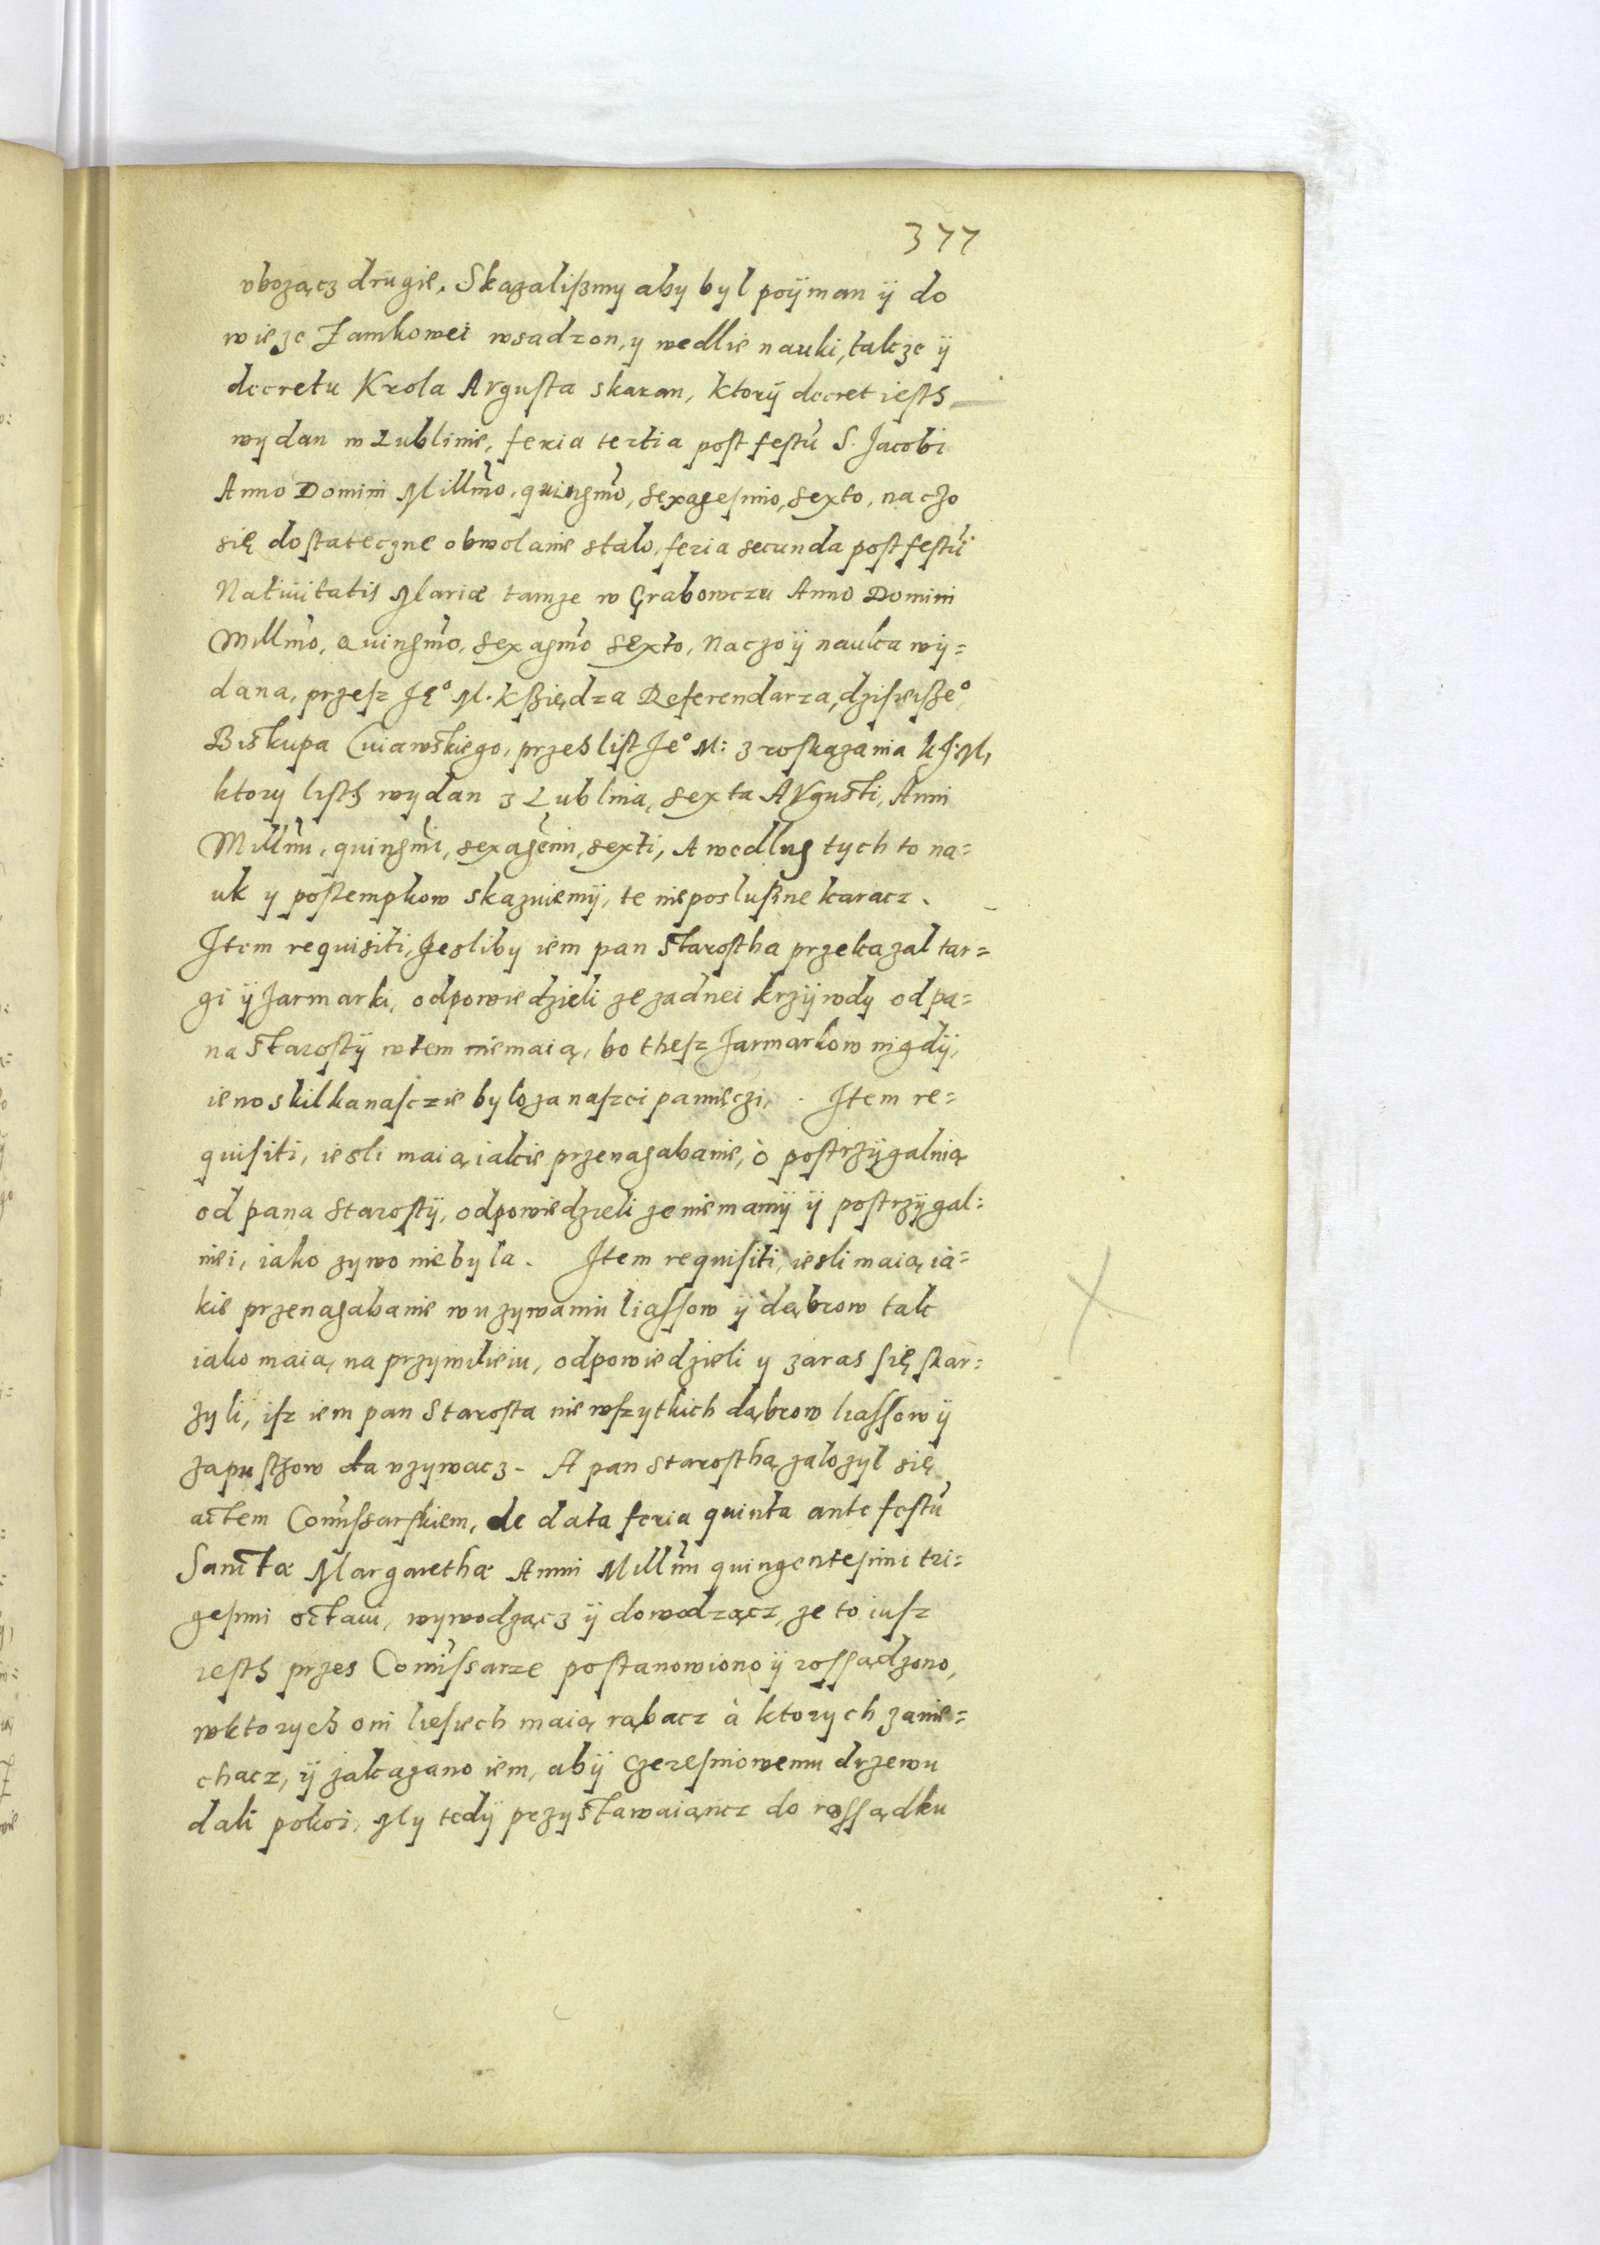 377
vbozącz drugie. Skazaliszmy aby był poÿman ÿ do
wieze Zamkowei wsadzon, y wedlie nauki, takze ÿ
decretu Krola Avgusta skaran, ktorÿ decret iesth
wydan w Lublinie, feria tertia post festũ S. Jacobi
Anno Domini Millm̃o, quingm̃o, sexagesimo, sexto, na czo
się dostateczne obwolanie stalo, feria secunda post festũ
Natiuitatis Mariæ tamze w Grabowczu Anno Domini
Millm̃o, Quingm̃o, sexagm̃o sexto, Na czo ÿ nauka wÿ=
dana, przesz Je° M. kszIędza Referendarza, dzisieisze°
Biskupa Cuiawskiego, przes list Je° M: z roskazania k J: M,
ktory listh wydan z Lublina, sexta AVgusti, Anni
Millm̃i, quingm̃i, sexagem̃i, sexti, A wedlug tych to na=
uk y postempkow skazuiemÿ, te nieposluszne karacz.
Item requisiti, Jesliby iem pan Starostha przekazal tar=
gi ÿ Jarmarki, odpowiedzieli ze zadnei krzÿwdy od pa=
na Starostÿ w tem niemaią, bo thesz Jarmarkow nigdÿ,
ieno s kilkanascie bylo za naszei pamięczi. Item re=
quisiti, iesli maią iakie przenagabanie, ò postrzÿgalnią
od pana Starostÿ, odpowiedzieli ze niemamÿ ÿ postrzÿgal=
niei, iako zywo niebyla. Item requisiti, iesli maią ia=
kie przenagabanie w uzywaniu liassow ÿ dąbrow tak
iako maią na przywileiu, odpowiedzieli y zaras się skar=
zyli, isz iem pan Starosta nie wszytkich dąbrow liassow ÿ
zapustzow da vzywacz. A pan Starostha zalozyl się
actem Comissarskiem, de data feria quinta ante festũ
Sanctæ Margarethæ Anni Millm̃i quingentesimi tri=
gesimi octaui, wywodzącz ÿ dowodzącz, ze to iusz
iesth przes Comissarze postanowiono ÿ rossądzono,
w ktorych oni liesiech maią rąbacz à ktorych zanie=
chacz, ÿ zakazano iem, abÿ czeresniowemu drzewu
dali pokoi, My tedÿ przystawaiąncz do rossądku